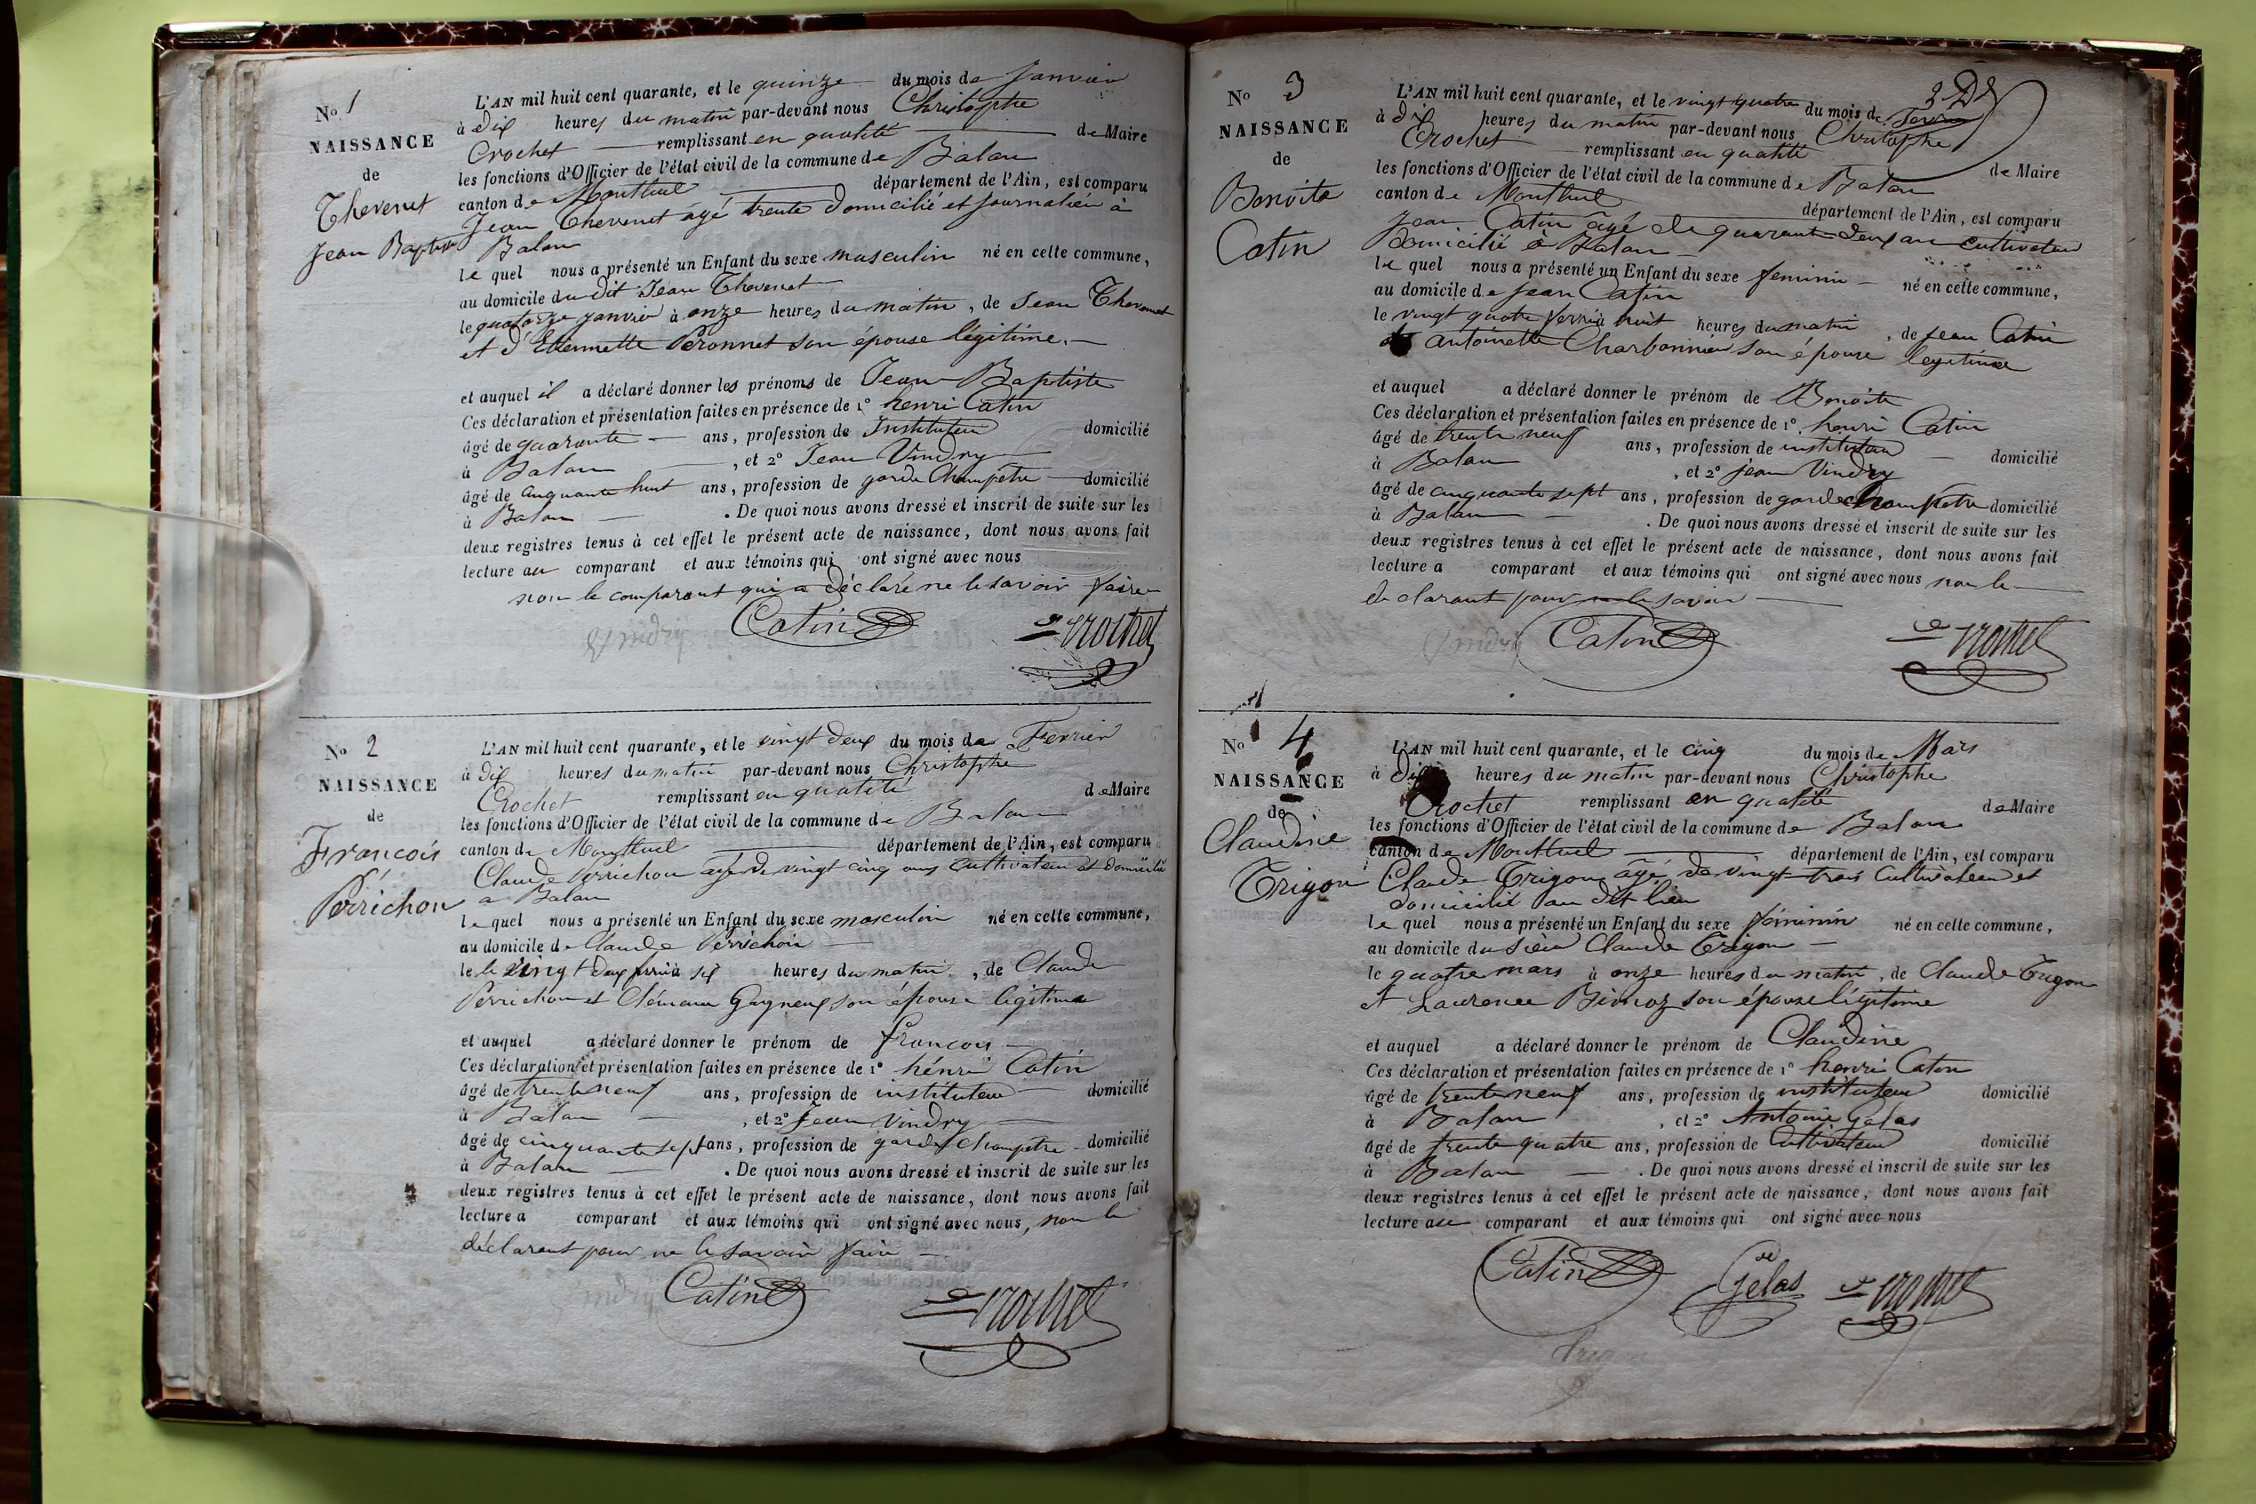 No 1
NAISSANCE
de
Thevenet
Jean Baptiste
L'AN mil huit cent quarante, et le quinze du mois de Janvier
à dix heures du matin par-devant nous Christophe
Crochet remplissant en qualité de Maire
les fonctions d'Officier de l'état civil de la commune de Balan
canton de Montluel département de l'Ain, est comparu
Jean Thevenet âgé trente domicilié et journalier à
Balan
le quel nous a présenté un Enfant du sexe masculin né en cette commune,
au domicile du dit Jean Thevenet
le quatorze janvier à onze heures du matin, de Jean Thevenet
et d'Etiennette Peronnet son épouse légitime.
et auquel il a déclaré donner les prénoms de Jean Baptiste
Ces déclaration et présentation faites en présence de 1º henri Catin
âgé de quarante ans, profession de Instituteur domicilié
à Balan, et 2º Jean Vindry
âgé de cinquante huit ans, profession de garde Champetre domicilié
à Balan. De quoi nous avons dressé et inscrit de suite sur les
deux registres tenus à cet effet le présent acte de naissance, dont nous avons fait
lecture au comparant et aux témoins qui ont signé avec nous
non le comparant qui a déclaré ne le savoir faire
Vindry Catin Crochet
No 2
NAISSANCE
de
François
Perrichon
L'AN mil huit cent quarante, et le vingt deux du mois de Ferrier
à dix heures du matin par-devant nous Christophe
Crochet remplissant en qualité de Maire
les fonctions d'Officier de l'état civil de la commune de Balan
canton de Montluel département de l'Ain, est comparu
Claude Perrichon agé de vingt cinq ans cultivateur et domicilié
a Balan
le quel nous a présenté un Enfant du sexe masculin né en cette commune,
au domicile de Claude Perrichon
le le vingt deux à six heures du matin, de Claude
Perrichon et Gagneux son épouse légitime
et auquel a déclaré donner le prénom de francois
Ces déclaration et présentation faites en présence de 1º hénri Catin
âgé de trente neuf ans, profession de instituteur domicilié
à Balan, et 2º Jean Vindry
âgé de cinquante sept ans, profession de garde champetre domicilié
à Balan. De quoi nous avons dressé et inscrit de suite sur les
deux registres tenus à cet effet le présent acte de naissance, dont nous avons fait
lecture a comparant et aux témoins qui ont signé avec nous, non le
déclarant pour ne le savoir faire
Catin Crochet
No 3
NAISSANCE
de
Benoite
Catin
L'AN mil huit cent quarante, et le vingt quatre du mois de
à dix heures du matin par-devant nous Christophe
Crochet remplissant en qualité de Maire
les fonctions d'Officier de l'état civil de la commune de Balan
canton de Montluel département de l'Ain, est comparu
Jean Catin âgé de quarante deux an cultivateur
domicilié à Balan
le quel nous a présenté un Enfant du sexe feminin né en cette commune,
au domicile de Jean Catin
le vingt quatre huit heures du matin, de Jean Catin
antoinette Charbonnier son épouse legitime
et auquel a déclaré donner le prénom de Benoite
Ces déclaration et présentation faites en présence de 1º. henri Catin
âgé de trente neuf ans, profession de instituteur domicilié
à Balan, et 2º jean Vindry
âgé de cinquante sept ans, profession de garde champetre domicilié
à Balan. De quoi nous avons dressé et inscrit de suite sur les
deux registres tenus à cet effet le présent acte de naissance, dont nous avons fait
lecture a comparant et aux témoins qui ont signé avec nous non le
declarant pour savoir
Vindry Catin Crochet
No 4
NAISSANCE
de
Claudine
Trigon
L'AN mil huit cent quarante, et le cinq du mois de Mars
à dix heures du matin par-devant nous Christophe
Crochet remplissant en qualité de Maire
les fonctions d'Officier de l'état civil de la commune de Balan
canton de Montluel département de l'Ain, est comparu
Claude Trigon âgé de vingt trois cultivateur et
domicilié au dit lieu
le quel nous a présenté un Enfant du sexe féminin né en cette commune,
au domicile du sieur Claude Trigon
le quatre mars à onze heures du matin, de Claude Trigon
et Laurence son épouse légitime
et auquel a déclaré donner le prénom de Claudine
Ces déclaration et présentation faites en présence de 1º henri Catin
âgé de trente neuf ans, profession de instituteur domicilié
à Balan, et 2º Antoine Gelas
âgé de trente quatre ans, profession de Cultivateur domicilié
à Balan. De quoi nous avons dressé et inscrit de suite sur les
deux registres tenus à cet effet le présent acte de naissance, dont nous avons fait
lecture au comparant et aux témoins qui ont signé avec nous
Catin Gelas Crochet
Trigon